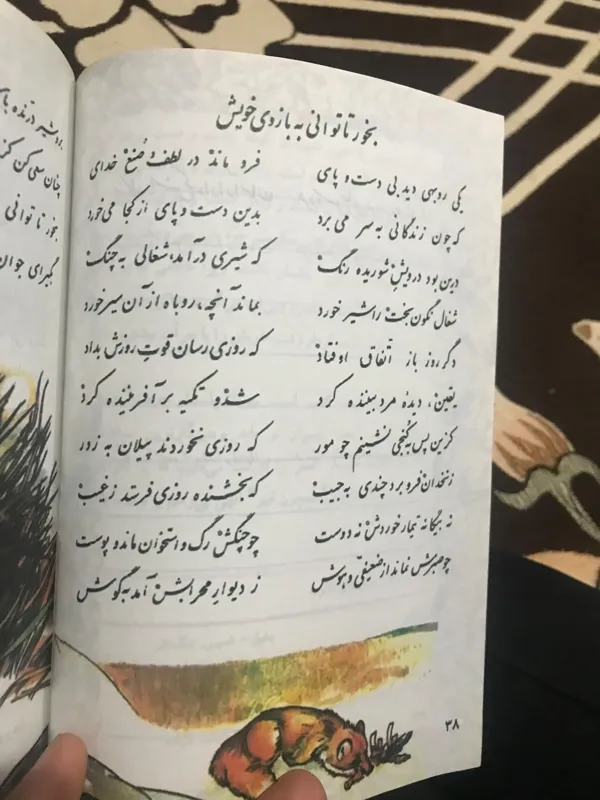 بخور تا توانی به بازوی خویش
یکی روبهی دید بی دست و پای فرو ماند در لطف و صُنع خدای
که چون زندگانی به سر می برد بدین دست و پای از کجا می خورد
درین بود درویش شوریده رنگ که شیری در آمد، شغالی به چنگ
شغال نگون بخت را شیر خورد بماند آنچه، روباه از آن سیر خورد
دگر روز باز اتّفاق اوفتاد که روزی رسان قوت روزش بداد
یقین، دیدهٔ مرد بیننده کرد شد و تکیه بر آفریننده کرد
کزین پس به کُنجی نشینم چو مور که روزی نخوردند پیلان به زور
زنخدان فرو برد چندی به جیب که بخشنده روزی فرستد ز غیب
نه بیگانه تیمار خوردش نه دوست چو چنگش رگ و استخوان ماند و پوست
چو صبرش نماند از ضعیفی و هوش ز دیوارِ محرابش آمد به گوش
۳۸
برو شیر درّنده
چنان سعی کن کز
بخور تا توانی
بگیر ای جوان